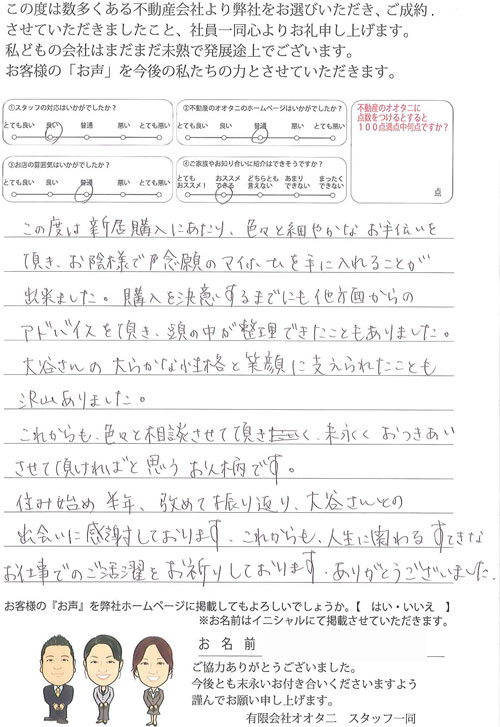 この度は数多くある不動産会社より弊社をお選びいただき、ご成約.
させていただきましたこと、社員一同心よりお礼申し上げます。
私どもの会社はまだまだ未熟で発展途上でございます。
お客様の「お声」を今後の私たちの力とさせていただきます。
①スタッフの対応はいかがでしたか？
とても良い 良い 普通 悪い とても悪い
②不動産のオオタニのホームページはいかがでしたか？
とても良い 良い 普通 悪い とても悪い
不動産のオオタニに
点数をつけるとすると
１００点満点中何点ですか？
点
③お店の雰囲気はいかがでしたか？
とても良い 良い 普通 悪い とても悪い
④ご家族やお知り合いに紹介はできそうですか？
とても
おススメ！
おススメ
できる
どちらとも
言えない
あまり
できない
まったく
できない
この度は新居購入にあたり、色々と細やかなお手伝いを
頂き、お陰様で念願のマイホームを手に入れることが
出来ました。購入を決意するまでにも他方面からの
アドバイスを頂き、頭の中が整理できたこともありました。
大谷さんの大らかな性格と笑顔に支えられたことも
沢山ありました。
これからも、色々と相談させて頂き、末永くおつきあい
させて頂ければと思うお人柄です。
住み始め半年、改めて振り返り、大谷さんとの
出会いに感謝しております。これからも、人生に関わるすてきな
お仕事でのご活躍をお祈りしております。ありがとうございました。
お客様の『お声』を弊社ホームページに掲載してもよろしいでしょうか。【 はい・いいえ 】
※お名前はイニシャルにて掲載させていただきます。
お 名 前
ご協力ありがとうございました。
今後とも末永いお付き合いくださいますよう
謹んでお願い申し上げます。
有限会社オオタニ スタッフ一同